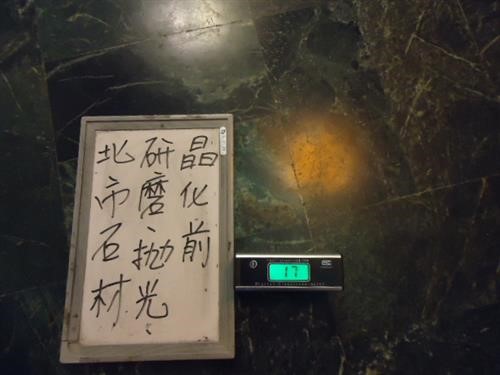 晶化前
研磨、抛光
北市石材
17